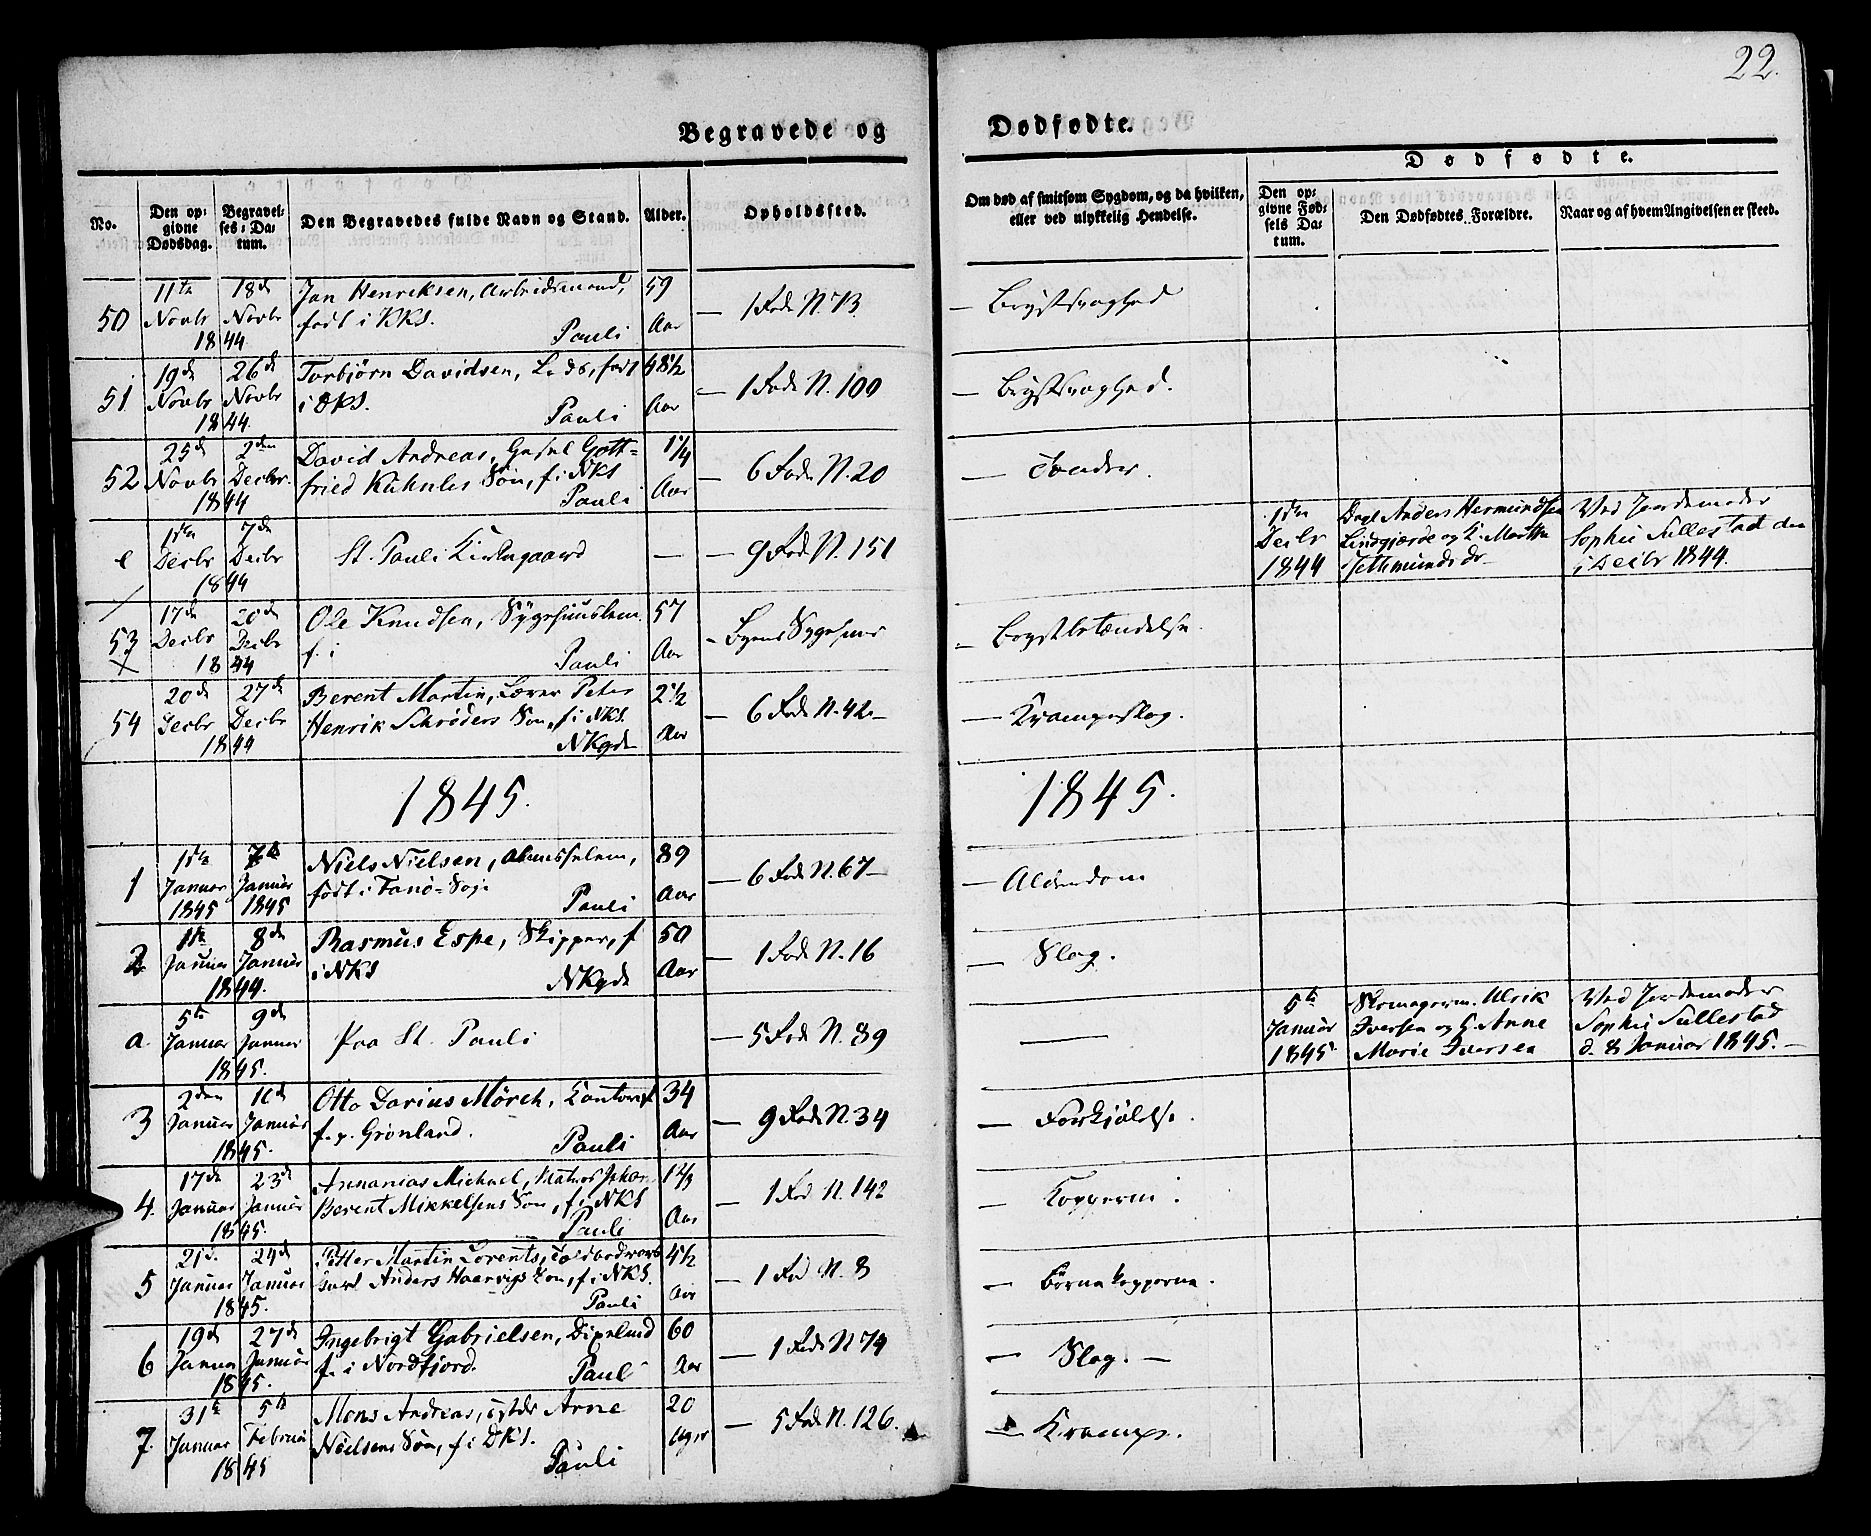 22.
Begravede og Dødfødte.
Dødfødte.
No.
Den op-
givne
Dødsdag.
Begravel-
ses-Da-
tum.
Den Begravedes fulde Navn og Stand.
Alder.
Opholdssted.
Om død af smitsom Sygdom, og da hvilken,
eller ved ulykkelig Hendelse.
Den op-
givne Fød-
sels Da-
tum.
Den Dødfødtes Forældre.
Naar og af hvem Angivelsen er skeed.
50 11te Novbr 18de Novbr 1844 Jan Henriksen, Arbeidsmand, 59
født i KKS. Pauli Aar — 1 Rode N. 73 — Brystsvaghed
51 19de Novbr 26de Novbr 1844 Torbjørn Davidsen, født 48 1/2
i DKS. Pauli Aar — 1 Rode N. 100 — Brystsvaghed.
52 25de Novbr 2den Decbr. 1844 David Andreas, Gott= 1 1/4
fried Kühnles Søn, f. i NKS
Pauli Aar — 6 Rode N. 20 — Tænder.
e 1ste Decbr 7de Decbr 1844 St. Pauli Kirkegaard — — 9 Rode N. 151
1ste Decbr 1844
Anders Hermundsen
Lindgjærde og K. Martha
Ved Jordemoder
Sophie Sullestad den
Decbr 1844.
53 17de Decbr 20de Decbr 1844 Ole Knudsen, Sygehuuslem 57
f. i Pauli Aar – Byens Sygehuus – Brystbetændelse.
54 20de Decbr 27de Decbr 1844 Berent Martin, Peter 2 1/2
Henrik Schrøders Søn, f. i NKS.
NKgde Aar — 6 Rode N. 42 — — Krampeslag.
1845. 1845.
1 1ste Januar 1845 7de Januar 1845 Niels Nielsen, Almisselem, 89
født i Fanø-Sogn Pauli Aar — 6 Rode N. 67 — — Alderdom
2 1ste Januar 8de Januar 1844. Rasmus Espe, Skipper, f 50
i NKS NKgde Aar — 1 Rode N. 16 — Slag.
a. 5te Januar 9de Januar 1845. Paa St. Pauli — 5 Rode N. 89 —
5te Januar 1845
Skomagerm. Ulrik
Iversen og H. Anne
Marie Iversen
Ved Jordemoder
Sophie Sullestad
d. 8 Januar 1845. —
3 2den Januar Januar 1845. Otto Darius Mörch, 34
f. p. Grønland. Pauli Aar — 9 Rode N. 34 — Forkjølelse.
4. 17de Januar 23de Januar 1845. Annanias Michael, 1 2/3
Berent Mikkelsens Søn, f. i NKS
Pauli Aar — 1 Rod N. 142 — Kopperne.
5 21de Januar 24de Januar 1845. Petter Martin Lorents, 4 1/2
Anders Haarvigs Søn, f. i NKS.
Pauli Aar — 1 Rod N. 8 — Børnekopperne.
6 19de Januar 27de Januar 1845. Ingebrigt Gabrielsen, 60
f. i Nordfjord. Pauli Aar — 1 Rode N 74 — Slag. —
7. 31te Januar 5te Februar 1845 Mons Andreas, Arne 20
Nielsens Søn, f. i DKS.
Pauli Uger — 5 Rode N. 126. — Krampe.